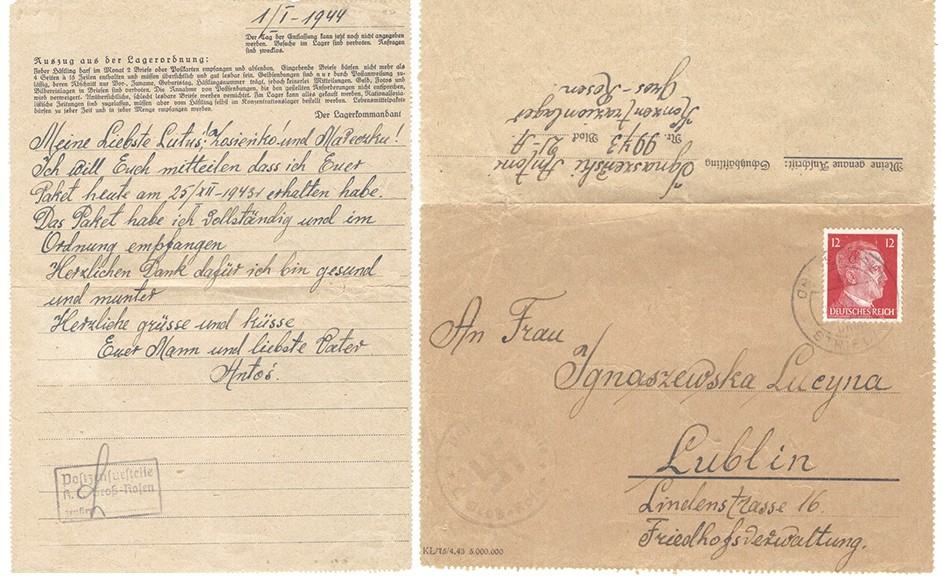 1/I - 1944
Der Tag der Entlassung kann jetzt noch nicht angegeben
werden. Besuche im Lager sind verboten. Anfragen
sind zwecklos.
Auszug aus der Lagerordnung:
Jeder Häftling darf im Monat 2 Briefe oder Postkarten empfangen und absenden. Eingehende Briefe dürfen nicht mehr als
4 Seiten à 15 Zeilen enthalten und müssen übersichtlich und gut lesbar sein. Geldsendungen sind nur durch Postanweisung zu-
lässig, deren Abschnitt nur Vor-, Zuname, Geburtstag, Häftlingsnummer trägt, jedoch keinerlei Mitteilungen. Geld, Fotos und
Bildereinlagen in Briefen sind verboten. Die Annahme von Postsendungen, die den gestellten Anforderungen nicht entsprechen,
wird verweigert. Unübersichtliche, schlecht lesbare Briefe werden vernichtet. Im Lager kann alles gekauft werden. Nationalsozia-
listische Zeitungen sind zugelassen, müssen aber vom Häftling selbst im Konzentrationslager bestellt werden. Lebensmittelpakete
dürfen zu jeder Zeit und in jeder Menge empfangen werden.
Der Lagerkommandant
Meine Liebste Lutuś! Zosieńko! und Małeczku!
Ich will Euch mitteilen dass ich Euer
Paket heute am 25/XII-1943r erhalten habe.
Das Paket habe ich vollständig und im
Ordnung empfangen
Herzlichen Dank dafür ich bin gesund
und munter
Herzliche grüsse und küsse
Euer Mann und liebste Vater
Antoś.
Postzensurstelle
K. L. Groß-Rosen
Meine genaue Anschrift:
Schutzhäftling
Ignaszewski Antoni
Nr. 9943 Block
Konzentrazionlager
Gros-Rosen.
12 12
DEUTSCHES REICH
An Frau
Ignaszewska Lucyna
Lublin
Lindenstrasse 16.
Friedhofsverwaltung.
KL/15/4.43 5.000.000